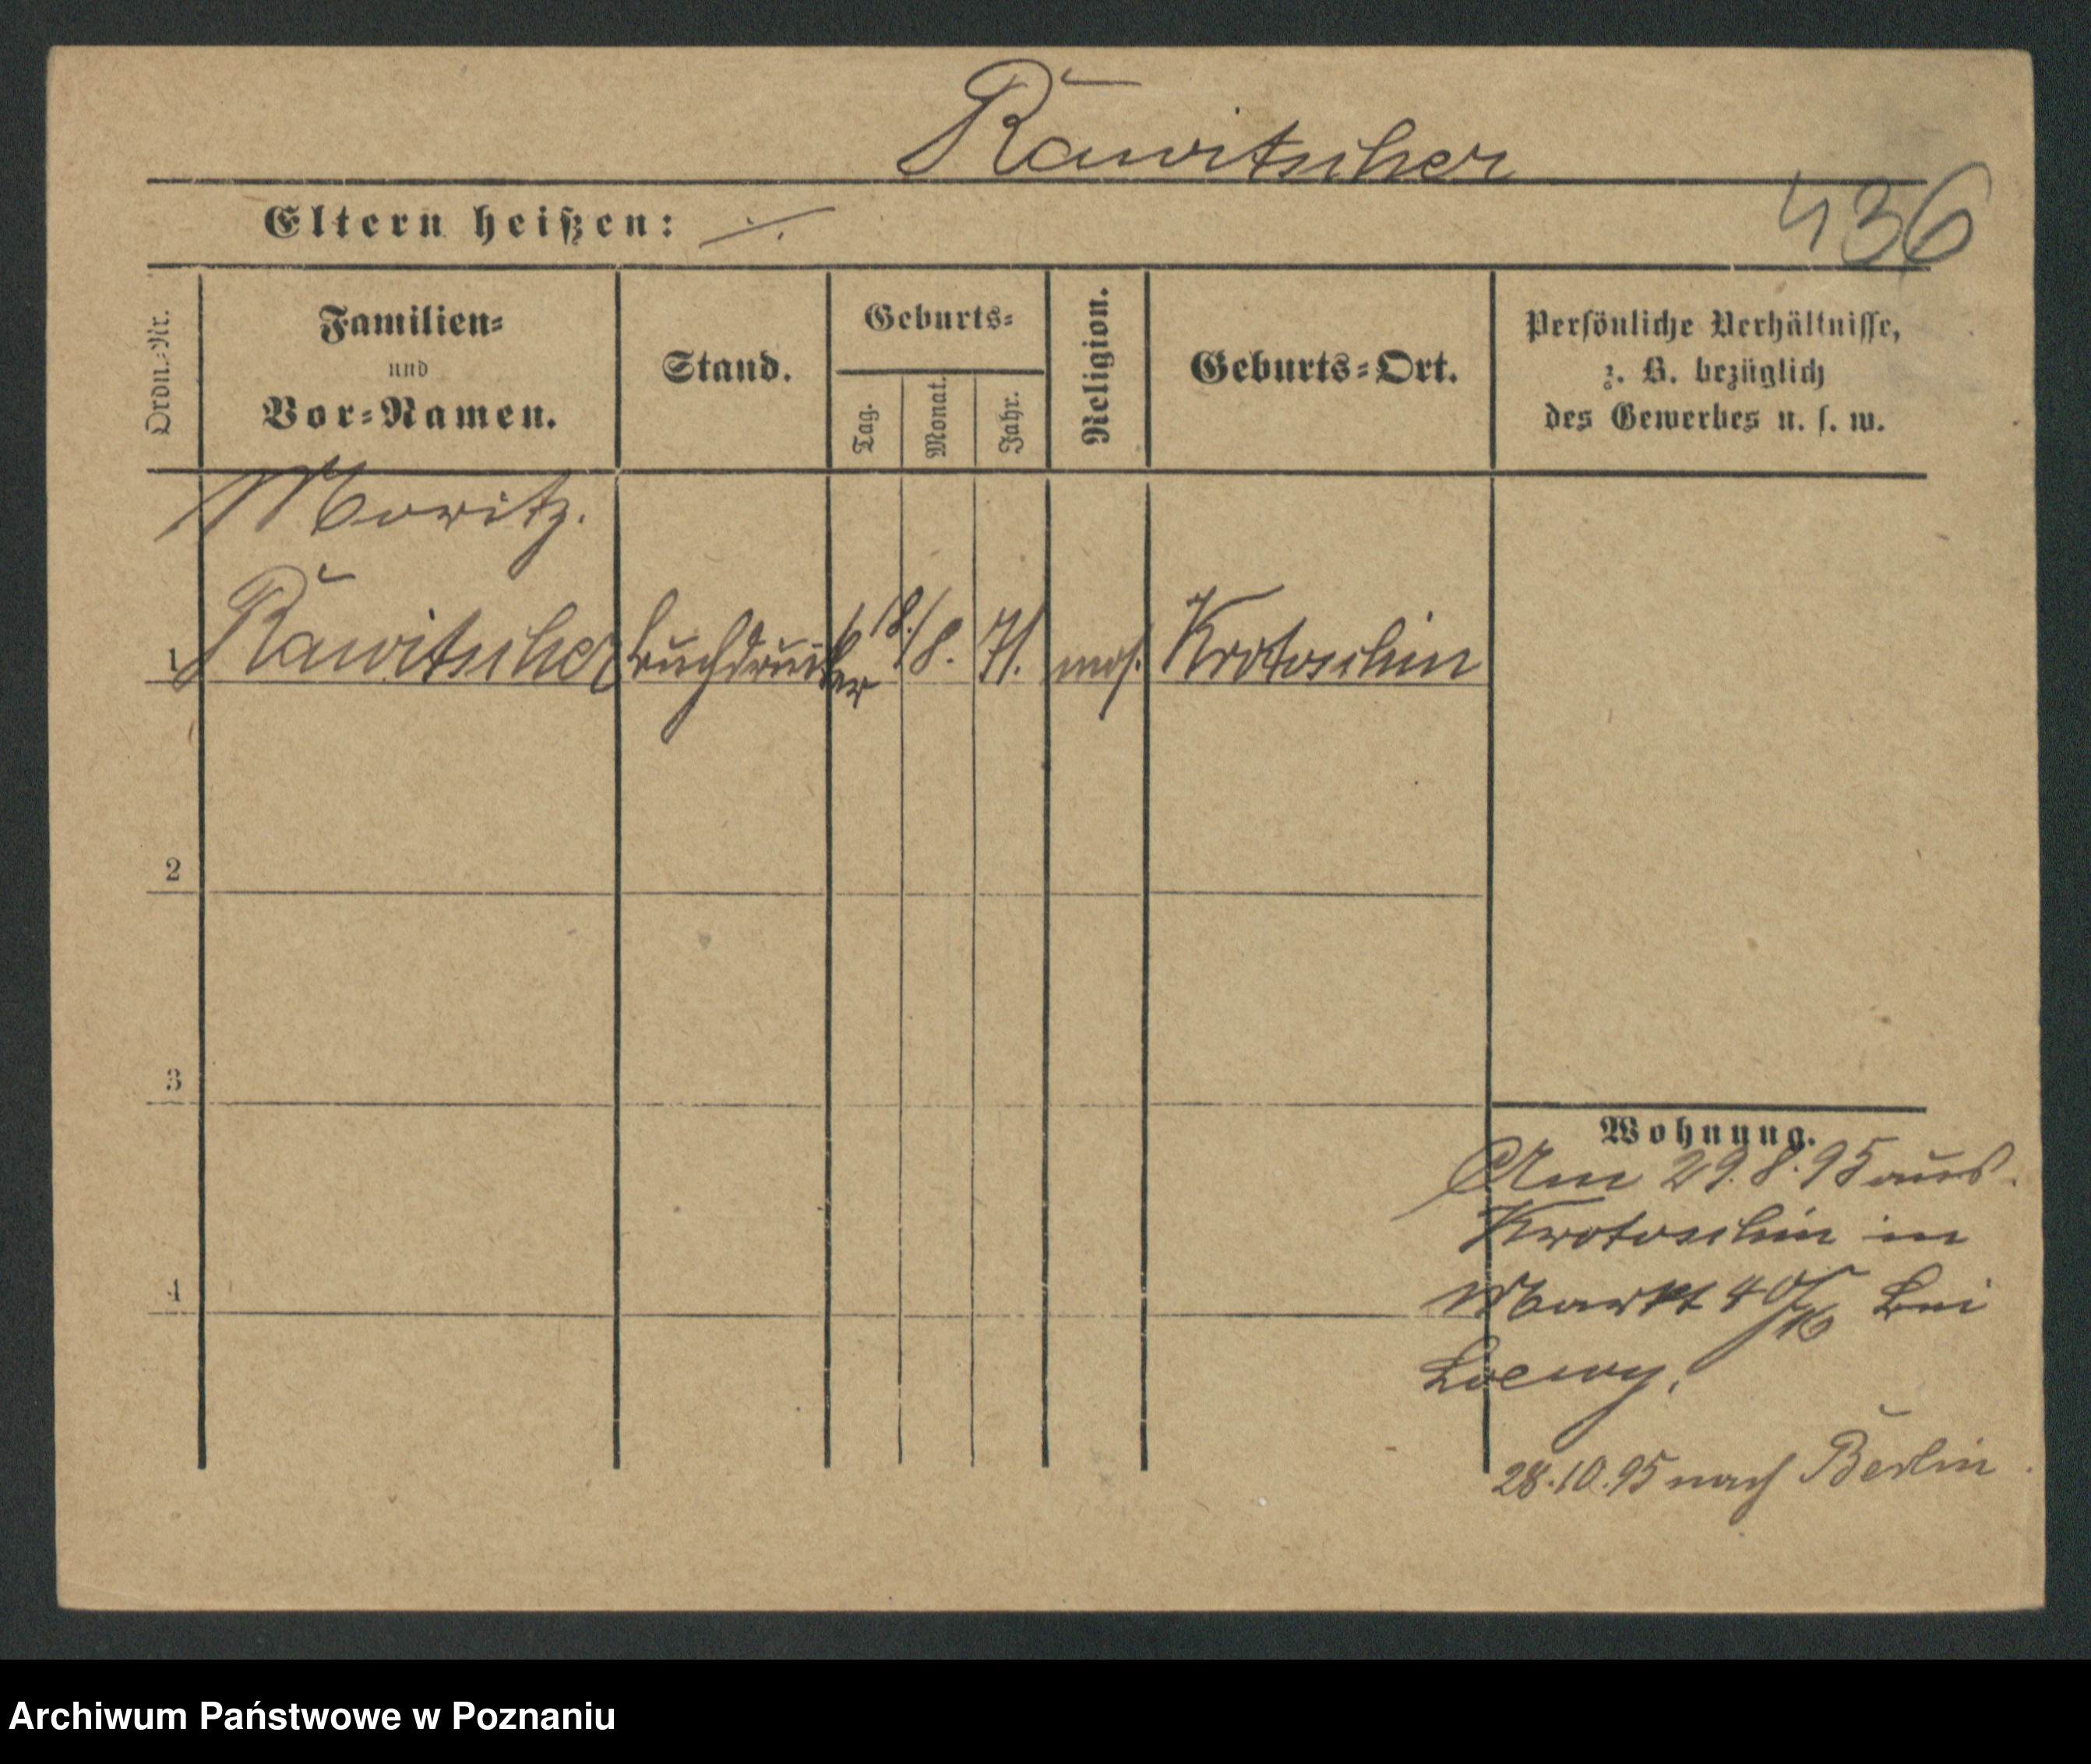 Rawitscher
436
Eltern heißen: ./.
Ordn.-Nr.
Familien-
und
Vor-Namen.
Stand.
Geburts-
Tag.
Monat.
Jahr.
Religion.
Geburts-Ort.
Persönliche Verhältnisse,
z. B. bezüglich
des Gewerbes u. s. w.
Moritz.
1 Rawitscher Buchdrucker 18./8. 71. mos. Krotoschin
2
3
4
Wohnung.
Am 29.8.95 aus
Krotoschin in
Markt 40/ bei
Loewy.
28.10.95 nach Berlin
Archiwum Państwowe w Poznaniu